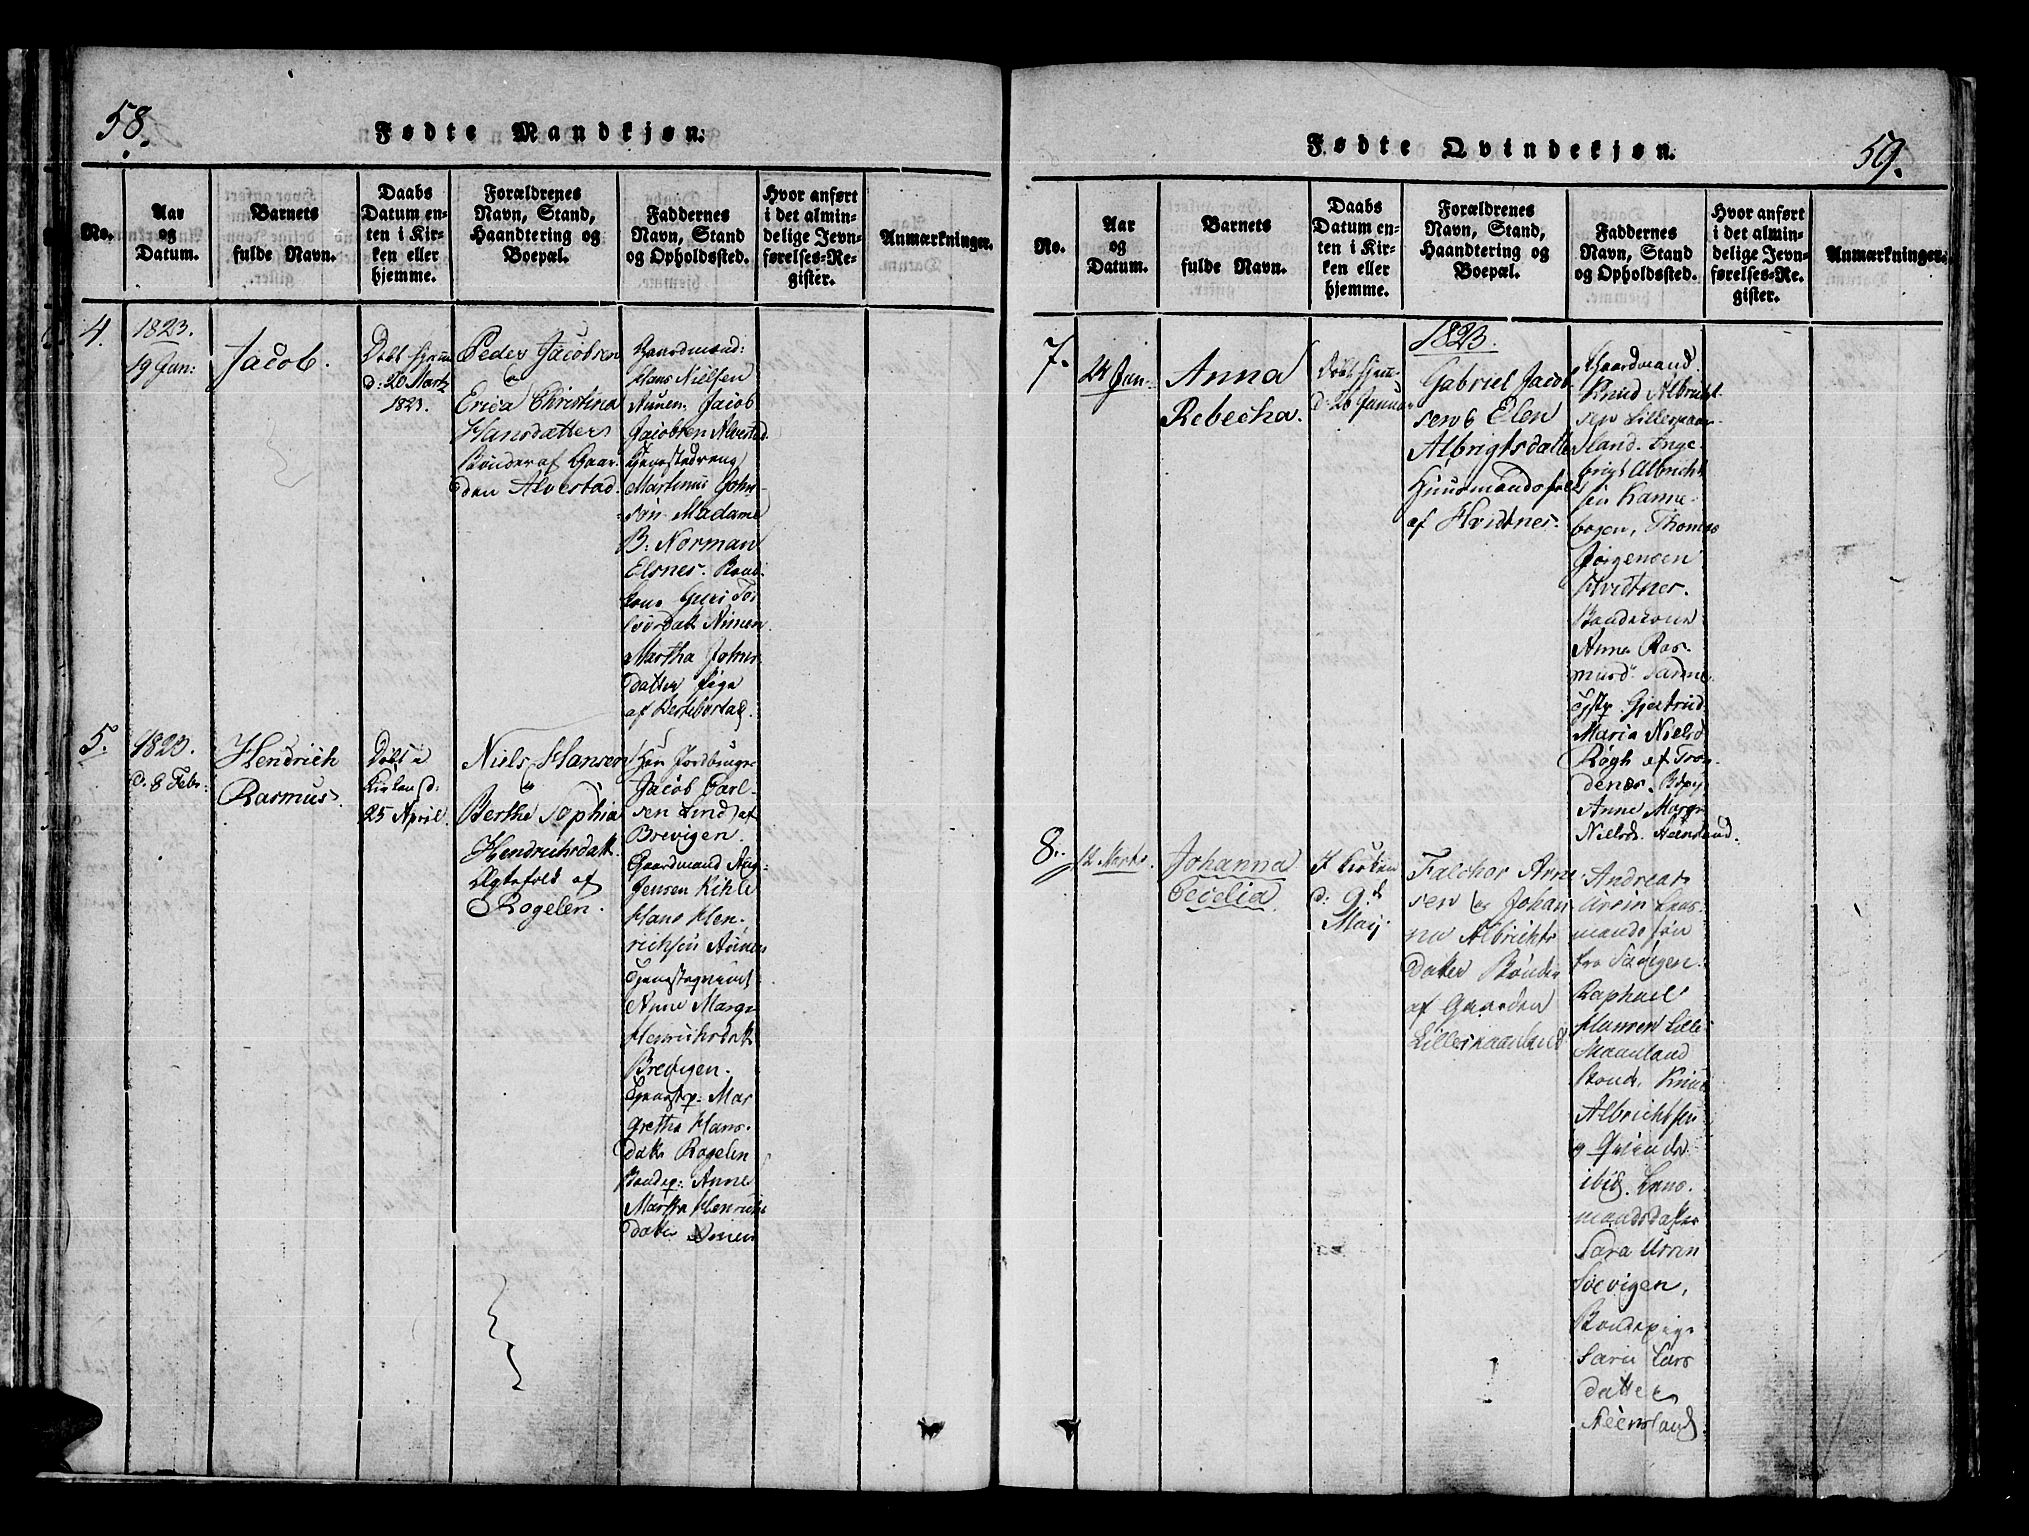 58.
Fødte Mandkjøn.
No.
Aar
og
Datum.
Barnets
fulde Navn.
Daabs
Datum en-
ten i Kir-
ken eller
hjemme.
Forældrenes
Navn, Stand,
Haandtering og
Boepæl.
Faddernes
Navn, Stand
og Opholdssted.
Hvor anført
i det almin-
delige Jevn-
førelses-Re-
gister.
Anmærkninger.
4.
1823.
19 Jan:
Jacob.
d: 20 Martz
1823.
Peder Jacobsen
Erica Christina
Hansdatter
Bønder af Gaar-
den Alvestad.
Gaardmand:
Hans Nielsen
Aunen. Jacob
Jacobsen Alvestad.
Tjenestedreng
Martinus John-
søn. Madame
B: Norman
Elsnes.
kone Guri
Martha Johns-
datter pige
af
5.
1823.
d. 8 Febr:
Hendrich
Rasmus.
Døbt i
Kirken d:
25 April.
Niels Hansen
Berthe Sophia
Hendrichsdatt.
Ægtefolk af
Rogelen.
Jacob Carl-
sen Lind af
Brevigen.
Gaardmand
Jensen Kihle
Hans Hen-
richsen Aunen
Anne Margr.
Henrichsdatt
Brevigen.
Tjenestp. Mar
gretha Hans-
datr Rogelen
Bondep: Anne
Martha Henrichs
datter
59.
Fødte Qvindekjøn.
No.
Aar
og
Datum.
Barnets
fulde Navn.
Daabs
Datum en-
ten i Kir-
ken eller
hjemme.
Forældrenes
Navn, Stand,
Haandtering og
Boepæl.
Faddernes
Navn, Stand
og Opholdssted.
Hvor anført
i det almin-
delige Jevn-
førelses-Re-
gister.
Anmærkninger.
7.
24 Jan.
Anna
Rebecha.
d: 26 Januar
1823.
Gabriel Jacob-
sen & Elen
Albrigtsdatter
Huusmandsfolk
af Hvidtnes.
Gaardmand.
Knud Albricht-
sen Lillemaan-
land. Inge-
brigt Albricht
sen Kanne-
bogen, Thomas
Jørgensen
Hvidtnes.
Bondekone
Anne Ras-
Gjertrud
Maria Nielsd
Røgh af Tron-
denæs.
Anne Margr
Nielsd.
8.
12 Marts.
Johanna
Cecelia.
I Kirken
d: 9d
Maij
Falchor Arne
sen og Johan
na Albrichts
datter Bønder
af Gaarden
Lillemaanland.
Andreas
mands søn
fra
Raphael
Hansen Lille
Maanland
Bonde. Knud
Albrichtsen
og Qvinde
ibid.
mandsdatter
Sara
Søevigen,
Bondepige
Sara Lars
datter
Steensland.